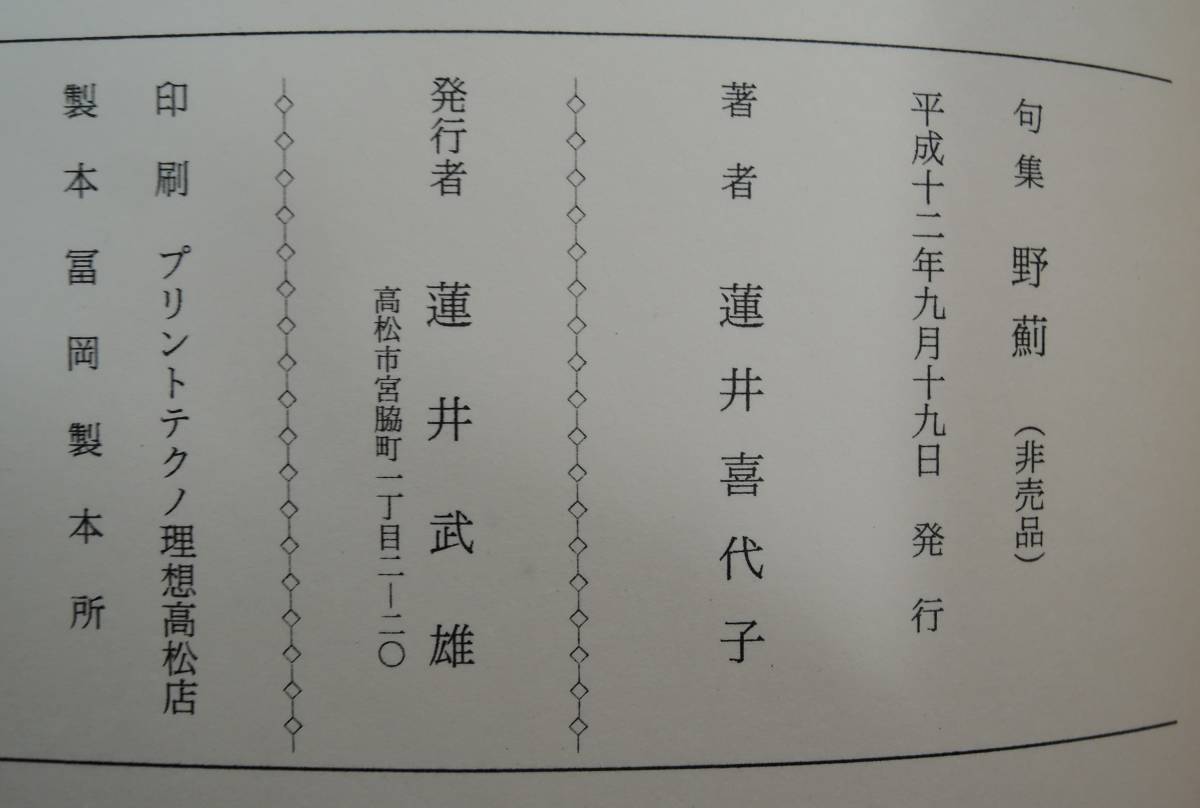 句集 野薊 (非売品)
平成十二年九月十九日 発行
著者 蓮井喜代子
発行者 蓮井武雄
高松市宮脇町一丁目二―二〇
印刷 プリントテクノ理想高松店
製本 冨岡製本所